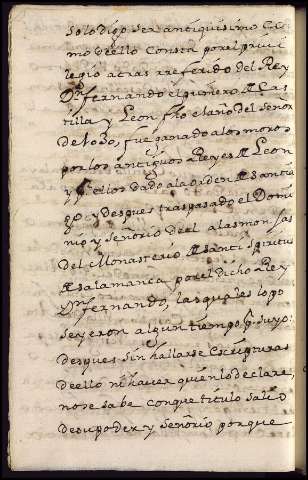 Solo digo ser antiquissimo co
mo deello consta por el privi
legio atras rreferido del Rey
Dn fernando el primero de Cas
tilla y Leon fho el año del Señor
de 1030, fue ganado alos moros
por los antiguos Reyes de Leon
y por ellos dado ala orden de Santia
go, y despues traspasado el Domi
nio y señorio deel alas monjas
del Monasterio de Santi spiritus
de Salamanca por el dicho Rey
Dn fernando, las quales lo po
seyeron algun tiempo pr. suyo:
despues sin hallarse escripturas
deello ni haver quien lo declare,
no se sabe con que titulo salio
de su poder y señorio porque